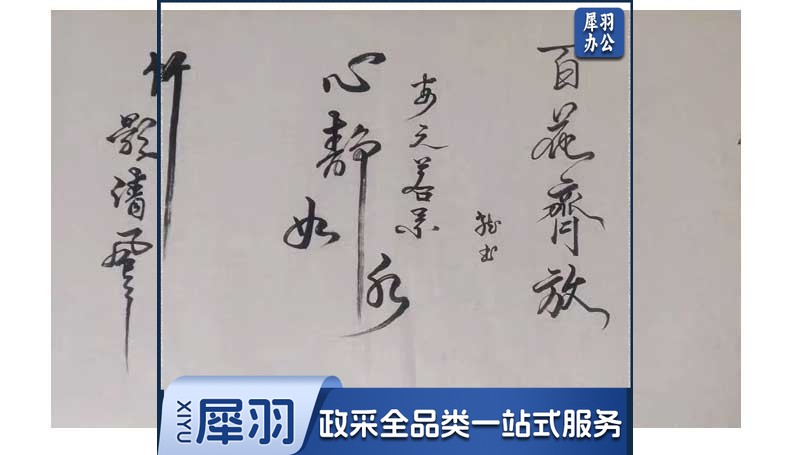 犀羽
办公
百花齊放
安之若素
心静如水
竹影清風
XIYU
犀羽
政采全品类一站式服务